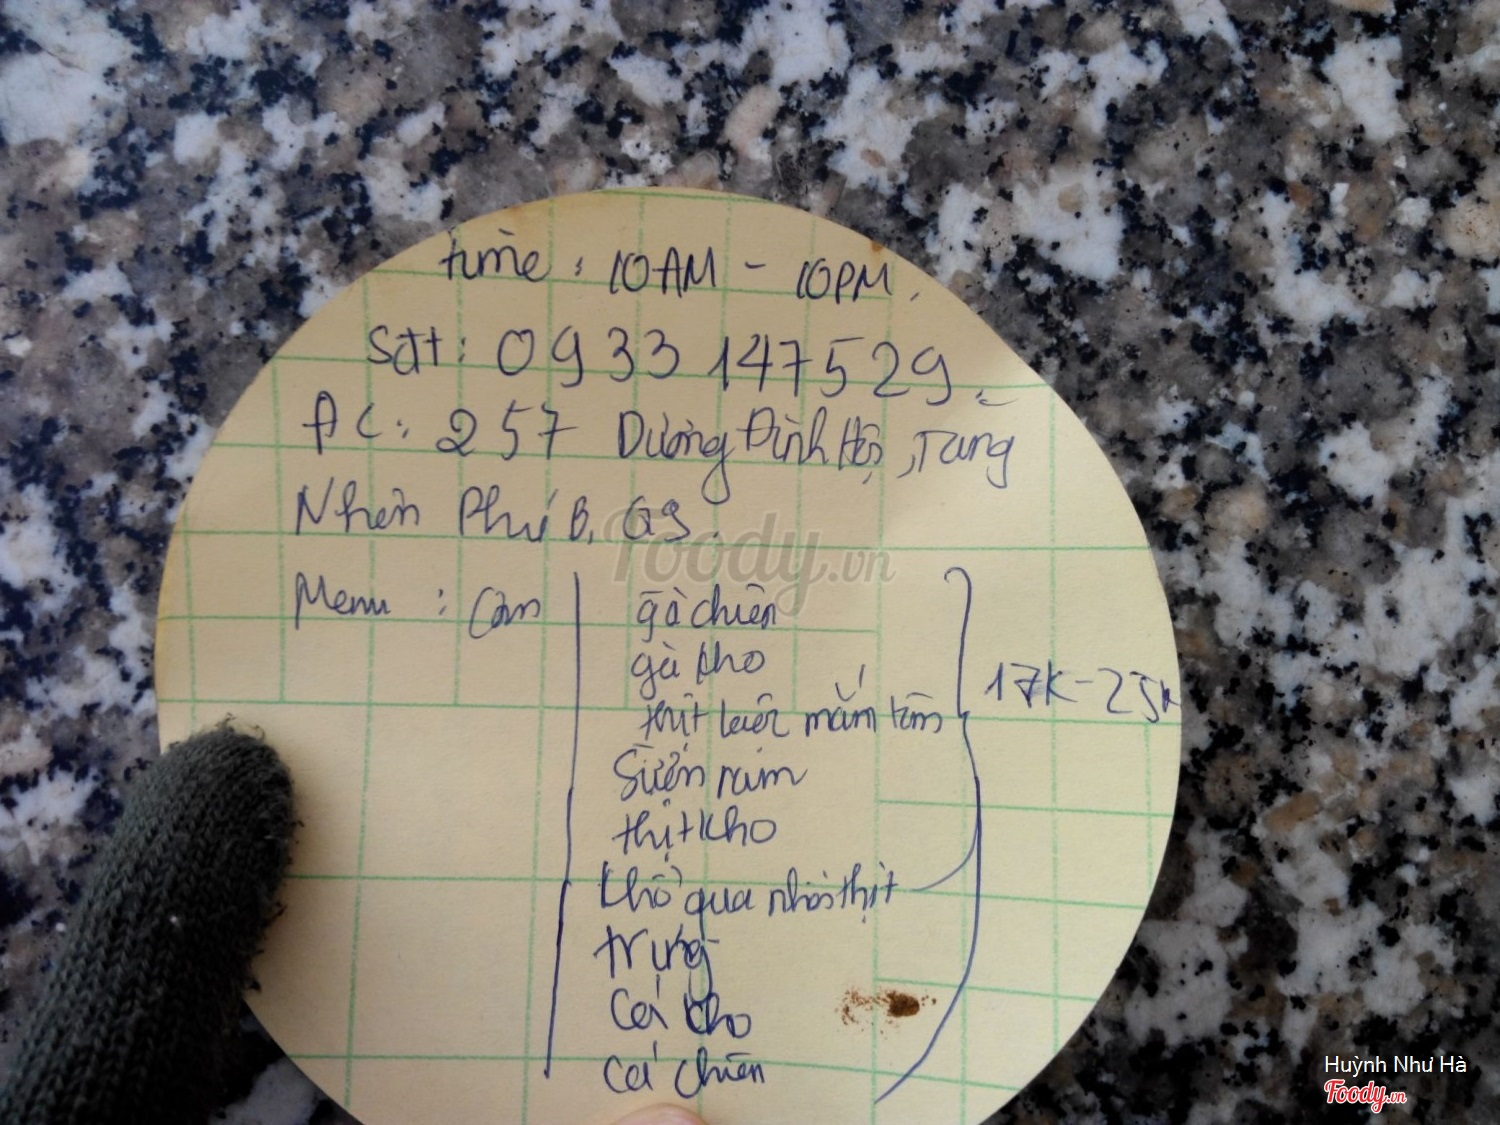 time : 10AM - 10PM.
Sđt: 0933 147529.
ĐC: 257 Dương Đình Hội, Tăng
Nhơn Phú B, Q9.
Menu : Cơm
gà chiên
gà kho
thịt luộc mắm tôm
Sườn ram
thịt kho
khổ qua nhồi thịt
trứng
Cá kho
Cá chiên
17K-25K
Foody.vn
Huỳnh Như Hà
Foody.vn